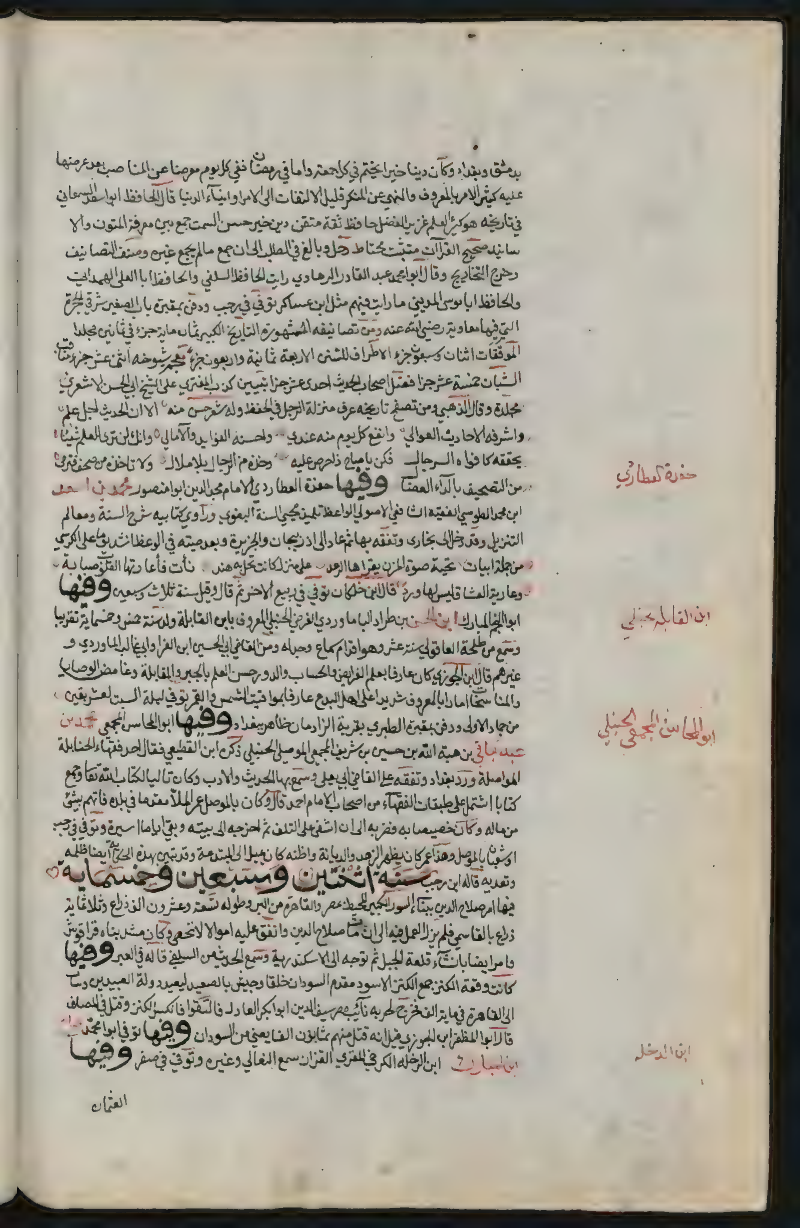 بدمشق وبغداد وكان دينا خيرا يختم في كل جمعة واما في رمضان ففي كل يوم معرضا عن المناصب بعد عرضها
عليه كثير الامر بالمعروف والنهي عن المنكر قليل الالتفات الى الامرا وابناء الدنيا قال الحافظ ابو سعد السمعاني
في تاريخه هو كبير العلم غزير الفضل حافظ ثقة متقن دين خير حسن السمت جمع بين معرفة المتون والا
سانيد صحيح القراآت متثبت محتاط رحل وبالغ في الطلب الى ان جمع مالم يجمع غيره وصنف التصانيف
وخرج التخاريج وقال ابو محمد عبد القادر الرهاوي رايت الحافظ السلفي والحافظ ابا العلى الهمداني
والحافظ ابا موسى المديني ما رايت فيهم مثل ابن عساكر توفي في رجب ودفن بمقبرة باب الصغير شرقي الحجرة
التي فيها معاوية رضي الله عنه ومن تصانيفه المشهورة التاريخ الكبير ثمان ماية جزء في ثمانين مجلدا
الموفقات اثنان وسبعون جزء الاطراف للسنن الاربعة ثمانية واربعون جزء معجم شيوخه اثنى عشر جزء مناقب
الشبان خمسة عشر جزا فضل اصحاب الحديث احدى عشر جزا تبيين كذب المفتري على الشيخ ابي الحسن الاشعري
مجلدة وقال الذهبي ومن تصفح تاريخه عرف منزلة الرجل في الحفظ وله شعر حسن منه الا ان الحديث اجل علم
واشرفه الاحاديث العوالي وانفع كل يوم منه عندي واحسنه الفوايد والامالي وانك لن ترى للعلم شيئا
يحققه كافواه الرجال فكن يا صاح ذا حرص عليه وخذه من الرجال بلا ملال ولا تاخذه من صحف فترمى
من التصحيف بالداء العضال وفيها حفدة العطاردي الامام مجد الدين ابو منصور محمد بن اسعد
ابن محمد الطوسي الفقيه الشافعي الاصولي الواعظ تلميذ محيي السنة البغوي وراوي كتابيه شرح السنة ومعالم
التنزيل وقد دخل الى بخارى وتفقه بها ثم عاد الى اذربيجان والجزيرة وبعد صيته في الوعظ انشد يوما على الكرسي
من جملة ابيات تحية صوب المزن يقراها الرعد على منزل كانت تحل به هند نأت فأعارتها القلوب صبابة
وعارية العشاق ليس لها ورد قال ابن خلكان توفي في ربيع الاخر ثم قال وقيل سنة ثلاث وسبعين وفيها
ابو النجم المبارك ابن الحسن بن طراد الباماوردي الفرضي الحنبلي المعروف بابن القابلة ولد سنة خمس وخمسماية تقريبا
وسمع من طلحة العاقولي سنة عشر وهو اقدم سماع وجداه ومن القاضي ابي الحسين ابن الفرا وابي غالب الماوردي و
غيرهم قال ابن الجوزي كان عارفا بعلم الفرايض والحساب والدور حسن العلم بالجبر والمقابلة وغامض الوصايا
والمناسخات امارا بالمعروف شديدا على اهل البدع عارفا بمواقيت الشمس والقمر توفي ليلة السبت لعشر بقين
من جماد الاولى ودفن بمقبرة الطبري بقرية الزادمان ظاهر بغداد وفيها ابو المحاسن المجمعي محمد بن
عبد الباقي بن هبة الله بن حسين بن شريف المجمعي الموصلي الحنبلي ذكره ابن القطيعي فقال احد فقهاء الحنابلة
المواصلة ورد بغداد وتفقه على القاضي ابي يعلى وسمع بها الحديث والادب وكان تاليا لكتاب الله تعا وجمع
كتابا اشتمل على طبقات الفقهاء من اصحاب الامام احمد قال وكان بالموصل عمر الملا مقدما في بلده فاتهم بشئ
من ماله وكان خصيصا به وضربه الى ان اشفى على التلف ثم اخرجه الى بيته وبقي اياما يسيرة وتوفي في رجب
او شعبان بالموصل وهذا عمر كان يظهر الزهد والديانة واظنه كان يميل الى المبتدعة وقد تبين بهذه الحكاية ايضا ظلمه
وتعديه قاله ابن رجب سنة اثنتين وسبعين وخمسماية
فيها امر صلاح الدين ببناء السور الكبير المحيط بمصر والقاهرة من البر وطوله تسعة وعشرون الف ذراع وثلاثماية
ذراع بالقاسمي فلم يزل العمل فيه الى ان مات صلاح الدين وانفق عليه اموالا لا تحصى وكان مشد بناه قراقوش
وامر ايضا بانشاء قلعة الجبل ثم توجه الى الاسكندرية وسمع الحديث من السلفي قاله في العبر وفيها
كانت وقعة الكنز جمع الكنز الاسود مقدم السودان خلقا وجيش بالصعيد ليعيد دولة العبيديين وسار
الى القاهرة في ماية الف فخرج لحربه نائب مصر سيف الدين ابو بكر العادل فالتقوا فانكسر الكنز وقتل في المصاف
قال ابو المظفر ابن الجوزي قيل انه قتل منهم ثمانون الفا يعني من السودان وفيها توفي ابو محمد
ابن المبارك ابن الدخله الكرخي المقري القزاز سمع النعالي وغيره وتوفي في صفر وفيها
العثمان
حفدة العطاردي
ابن القابلة الحنبلي
ابو المحاسن المجمعي الحنبلي
ابن الدخله